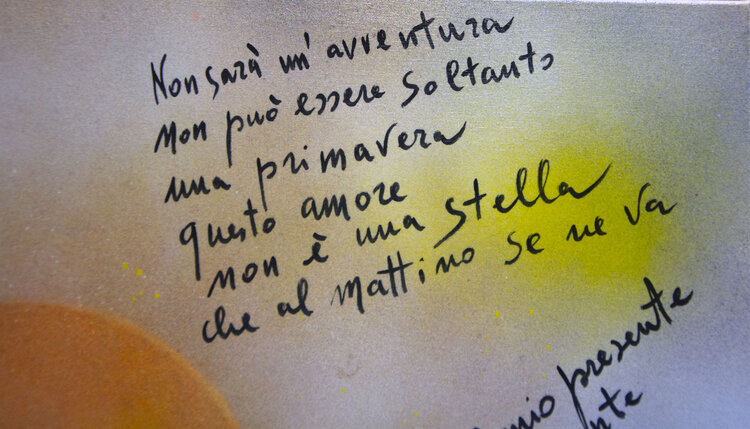 Non sarà un' avventura
non può essere soltanto
una primavera
questo amore
non è una stella
che al mattino se ne va
mio presente